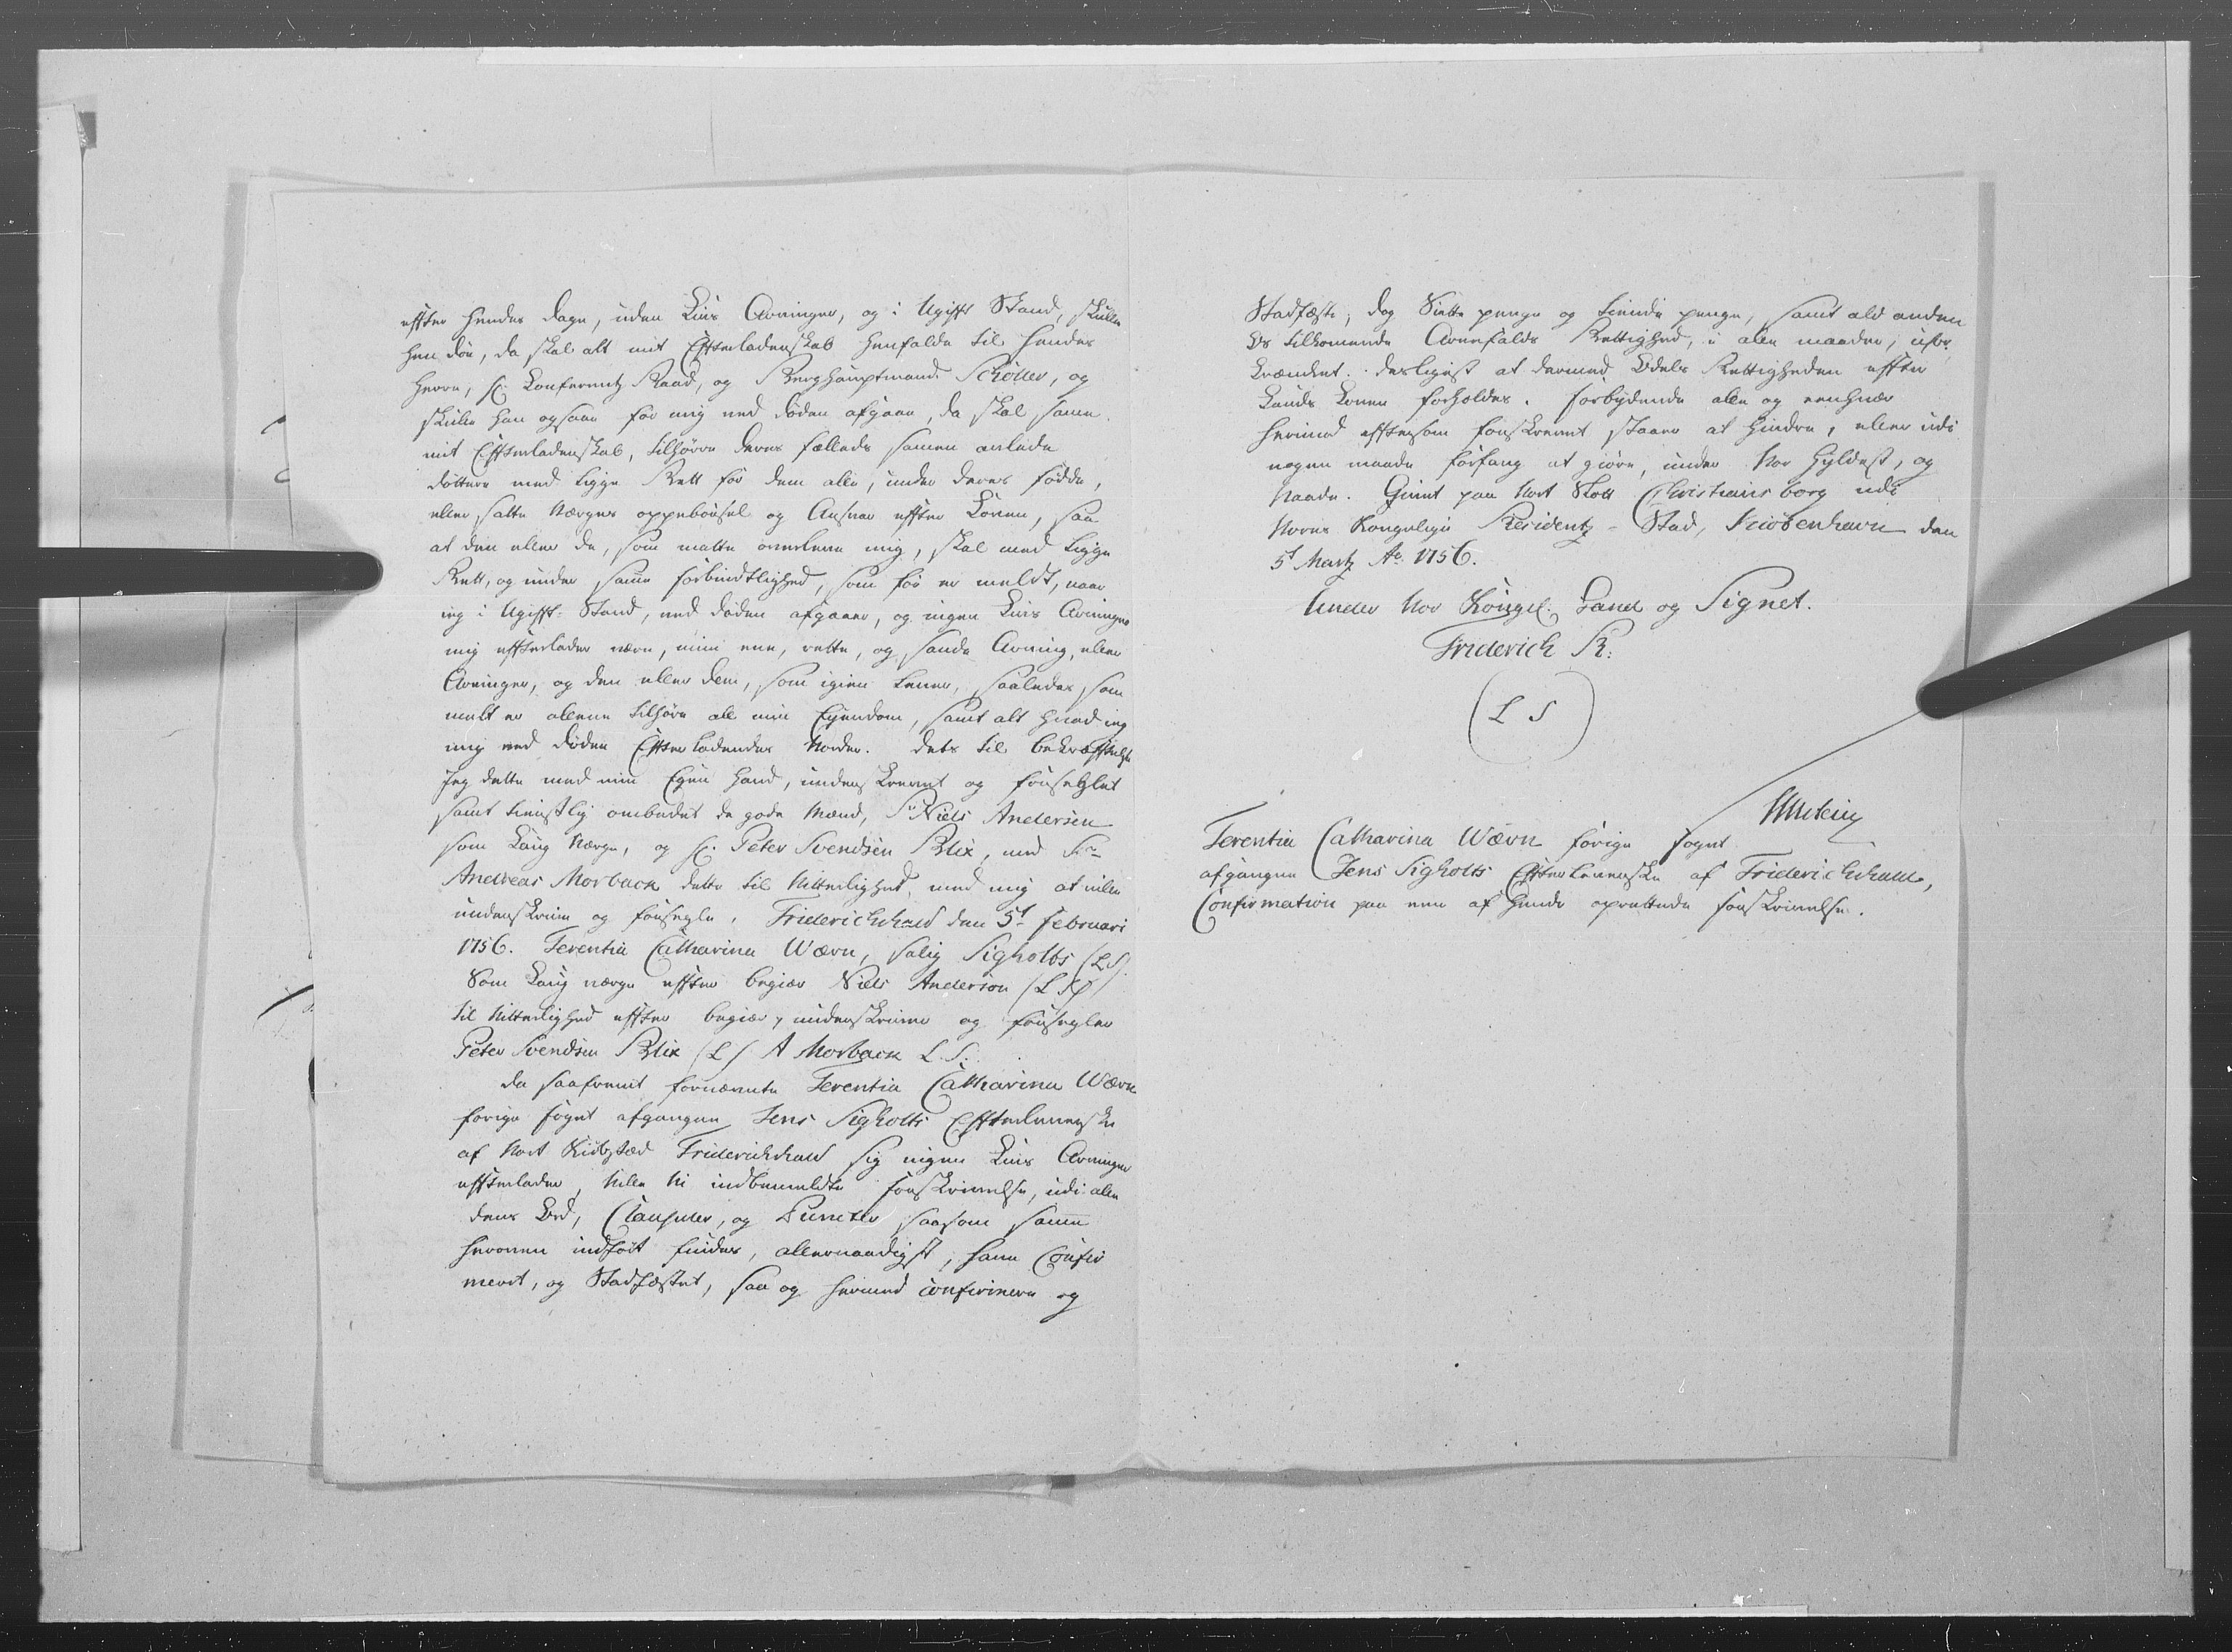 efter hendes dage, uden Livs Arvinger, og i Ugift Stand, skulle
hun döe, da skal alt mit Efterladenskab henfalde til hendes
Herre, Hr. Conferentz Raad, og Berghauptmand Schöller, og
skulle han ogsaa før mig ved døden afgaae, da skal samme
mit Efterladenskab, tilhöre deres fælleds sammen avlede
døttre med ligge Rett for dem alle, under deres fødde,
eller satte Værges oppebørsel og Ansvar efter Loven, saa
at den eller de, som maatte overleve mig, skal med ligge
Rett, og under samme forbindtlighed, som før er meldt, naar
ieg i Ugift-Stand, ved døden afgaaer, og ingen Livs Arvinger
mig efterlader være, min ene, rette, og sande Arving, eller
Arvinger, og den eller dem, som igien lever, saaledes som
meldt er allene tilhøre all min Eyendom, samt alt hvad ieg
mig ved døden Efterladendes vorder. dets til bekræftelse
Jeg dette med min Egen Haand, underskrevet og forseglet
samt tienstlig ombedet de gode Mænd, Sr Niels Andersen
som Laug Værge, og Hr. Peter Svendsen Blix, med Sr
Andreas Morback dette til Vitterlighed, med mig at ville
underskrive og forsegle. Friderichshald den 5t februari
1756. Terentia Catharina Wærn, salig Sigholts (LS).
Som Laug værge efter begier Niels Anderson (LS)
til Vitterlighed efter begier, underskriver og forsegler
Peter Svendsen Blix (LS) A Morback L.S.
da saafremt fornævnte Terentia Catharina Wærn
forige fogut afgangne Jens Sigholts Efterleverske
af Vort Kiöbstæd Friderichshald sig ingen Livs Arvinger
efterlader, Ville Vi indbemeldte forskrivelse, udi alle
dens Ord, Clausuler, og Puncter saasom samme
heroven indført findes, allernaadigst, have Confir
meret, og Stadfæstet, saa og hermed confirmere og
Stadfæste, dog Siette penge og tiende penge, samt ald anden
Os tilkomende Arvefalds Rettighed, i alle maader, ufor
krænket. desligest at dermed Odels Rettigheden efter
Lands Loven forholdes. forbydende alle og eenhver
herimod eftersom forskrevet staaer at hindre, eller udi
nogen maade forfang at giøre, under Vor Hyldest, og
Naade. Givet paa Vort Slott Christiansborg udi
Vores Kongelige Residentz-Stad, Kiøbenhavn den
5t Martz Ao. 1756.
Under Vor Kongel. Haand og Signet.
Friderich R:
(L S)
Terentia Catharina Wærn forige fogut
afgangne Jens Sigholts Efterleverske af Friderichshald,
Confirmation paa een af hende oprettede forskrivelse.